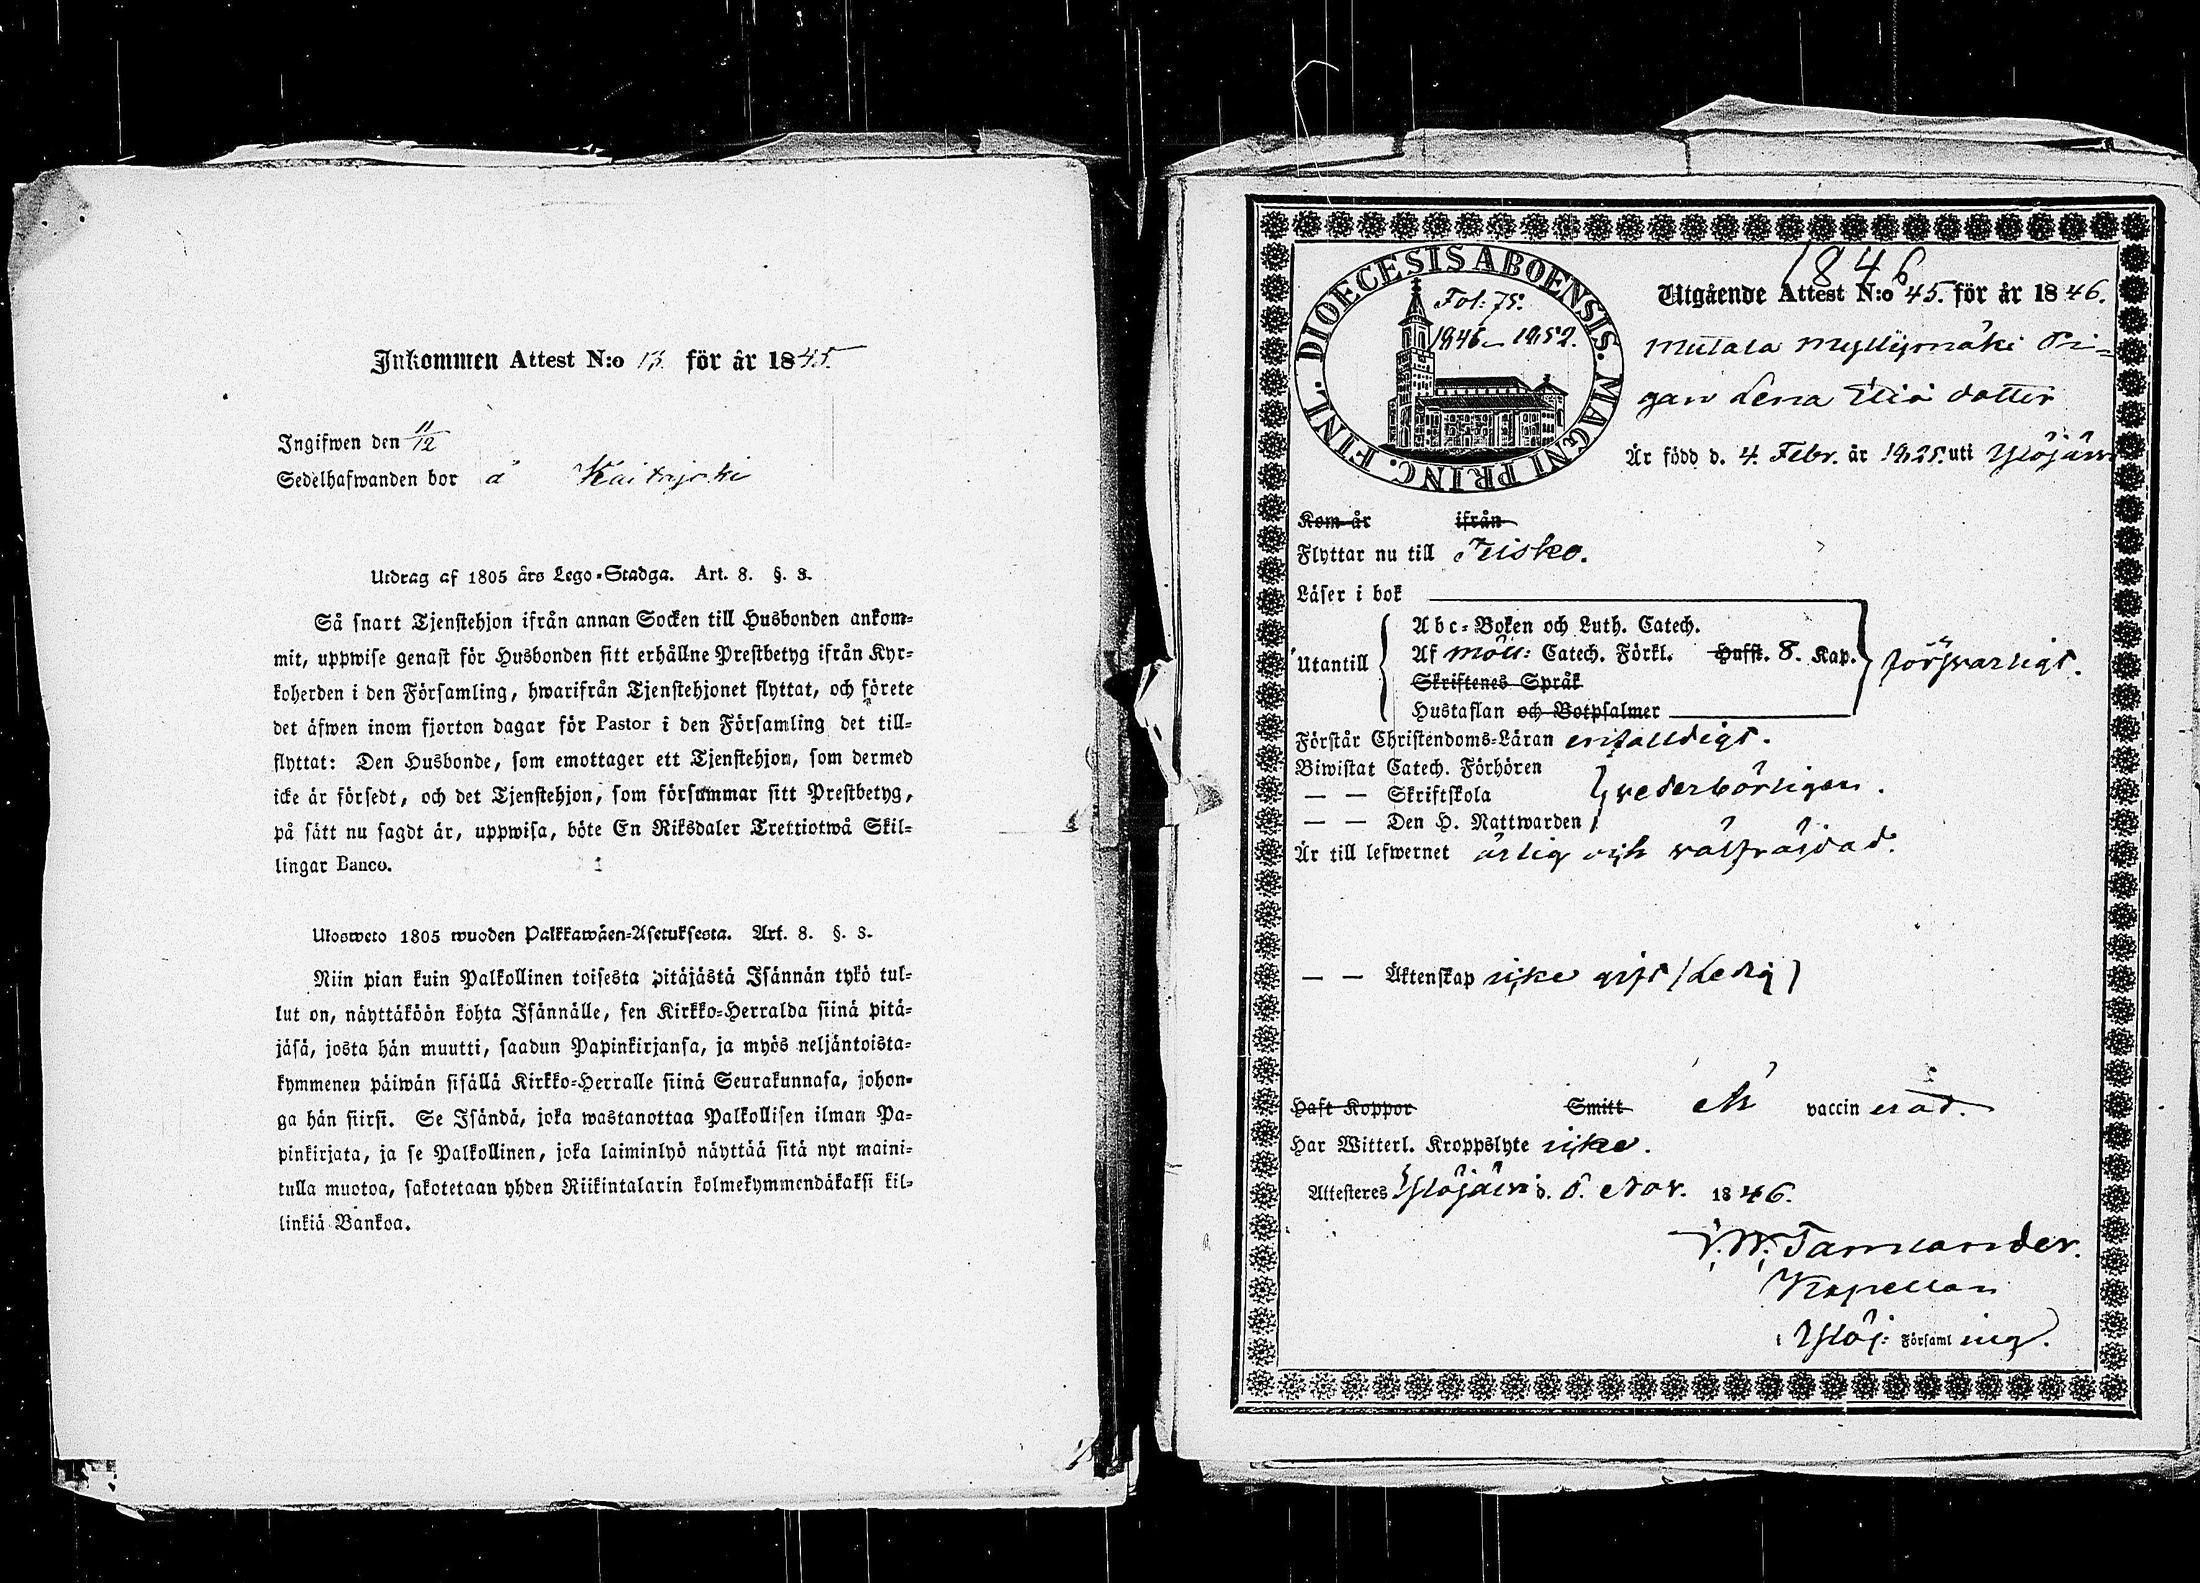 Inkommen Attest N:o 13. för år 1845.
Ingifwen den 11/12
Sedelhafwanden bor å
Utdrag af 1805 års Lego-Stadga. Art. 8. §. 3.
Så snart Tjenstehjon ifrån annan Socken till Husbonden ankom-
mit, uppwise genast för Husbonden sitt erhållne Prestbetyg ifrån Kyr-
koherden i den Församling, hwarifrån Tjenstehjonet flyttat, och förete
det äfwen inom fjorton dagar för Pastor i den Församling det till-
flyttat: Den Husbonde, som emottager ett Tjenstehjon, som dermed
icke är försedt, och det Tjenstehjon, som försummar sitt Prestbetyg,
på sätt nu sagdt är, uppwisa, böte En Riksdaler Trettiotwå Skil-
lingar Banco.
Ulosweto 1805 wuoden Palkkawäen-Asetuksesta. Art. 8. §. 3.
Niin pian kuin Palkollinen toisesta pitäjästä Isännän tykö tul-
lut on, näyttäköön kohta Isännälle, sen Kirkko-Herralda siinä pitä-
jäsä, josta hän muutti, saadun Papinkirjansa, ja myös neljäntoista-
kymmenen päiwän sisällä Kirkko-Herralle siinä Seurakunnasa, johon-
ga hän siirsi. Se Isändä, joka wastanottaa Palkollisen ilman Pa-
pinkirjata, ja se Palkollinen, joka laiminlyö näyttää sitä nyt maini-
tulla muotoa, sakotetaan yhden Riikintalarin kolmekymmendäkaksi kil-
linkiä Bankoa.
1846
DIOECESIS ABOENSIS. MAGNI PRINC. FINL.
Fol: 75.
1846–1852.
Utgående Attest N:o 45. för år 1846.
Mutala Myllymäki Pi-
gan Lena Elia dotter
Är född d. 4. Febr. år 1825. uti Ylöjärvi
Kom år ifrån
Flyttar nu till Teisko.
Läser i bok
Utantill
Abc-Boken och Luth. Catech.
Af Möll: Catech. Förkl. Hufst. 8. Kap.
Skriftenes Språk
Hustaflan och Botpsalmer
försvarligt.
Förstår Christendoms-Läran enfalldigt.
Biwistat Catech. Förhören
— — Skriftskola
— — Den H. Nattwarden
vederbörligen.
Är till lefwernet ärlig och välfräjdad.
— — Äktenskap icke gift (Ledig)
Haft Koppor Smitt Är vaccinerad.
Har Witterl. Kroppslyte icke.
Attesteres Ylöjärvi d. 6. Nov. 1846.
Tamlander.
Kapellan
i Ylöj: Församling.